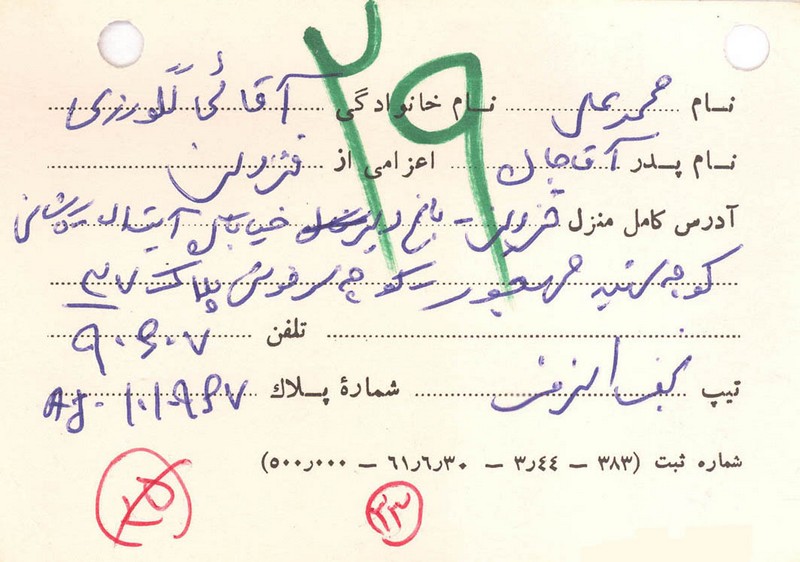 ۲۹
نام محمدعلی نام خانوادگی آقائی گلورزی
نام پدر آقاجان اعزامی از قزوین
آدرس کامل منزل قزوین - باغ دبیر خیابان آیت‌اله کاشانی
کوچه شهید - کوچه سرخوش پلاک ۳۷
تلفن ۹۰۶۰۷
تیپ نجف اشرف شماره پلاک AJ-
شماره ثبت (۳۸۳ – ۳٫۴۴ – ۶۱٫۶٫۳۰ – ۵۰۰٫۰۰۰)
۲۵
۳۳